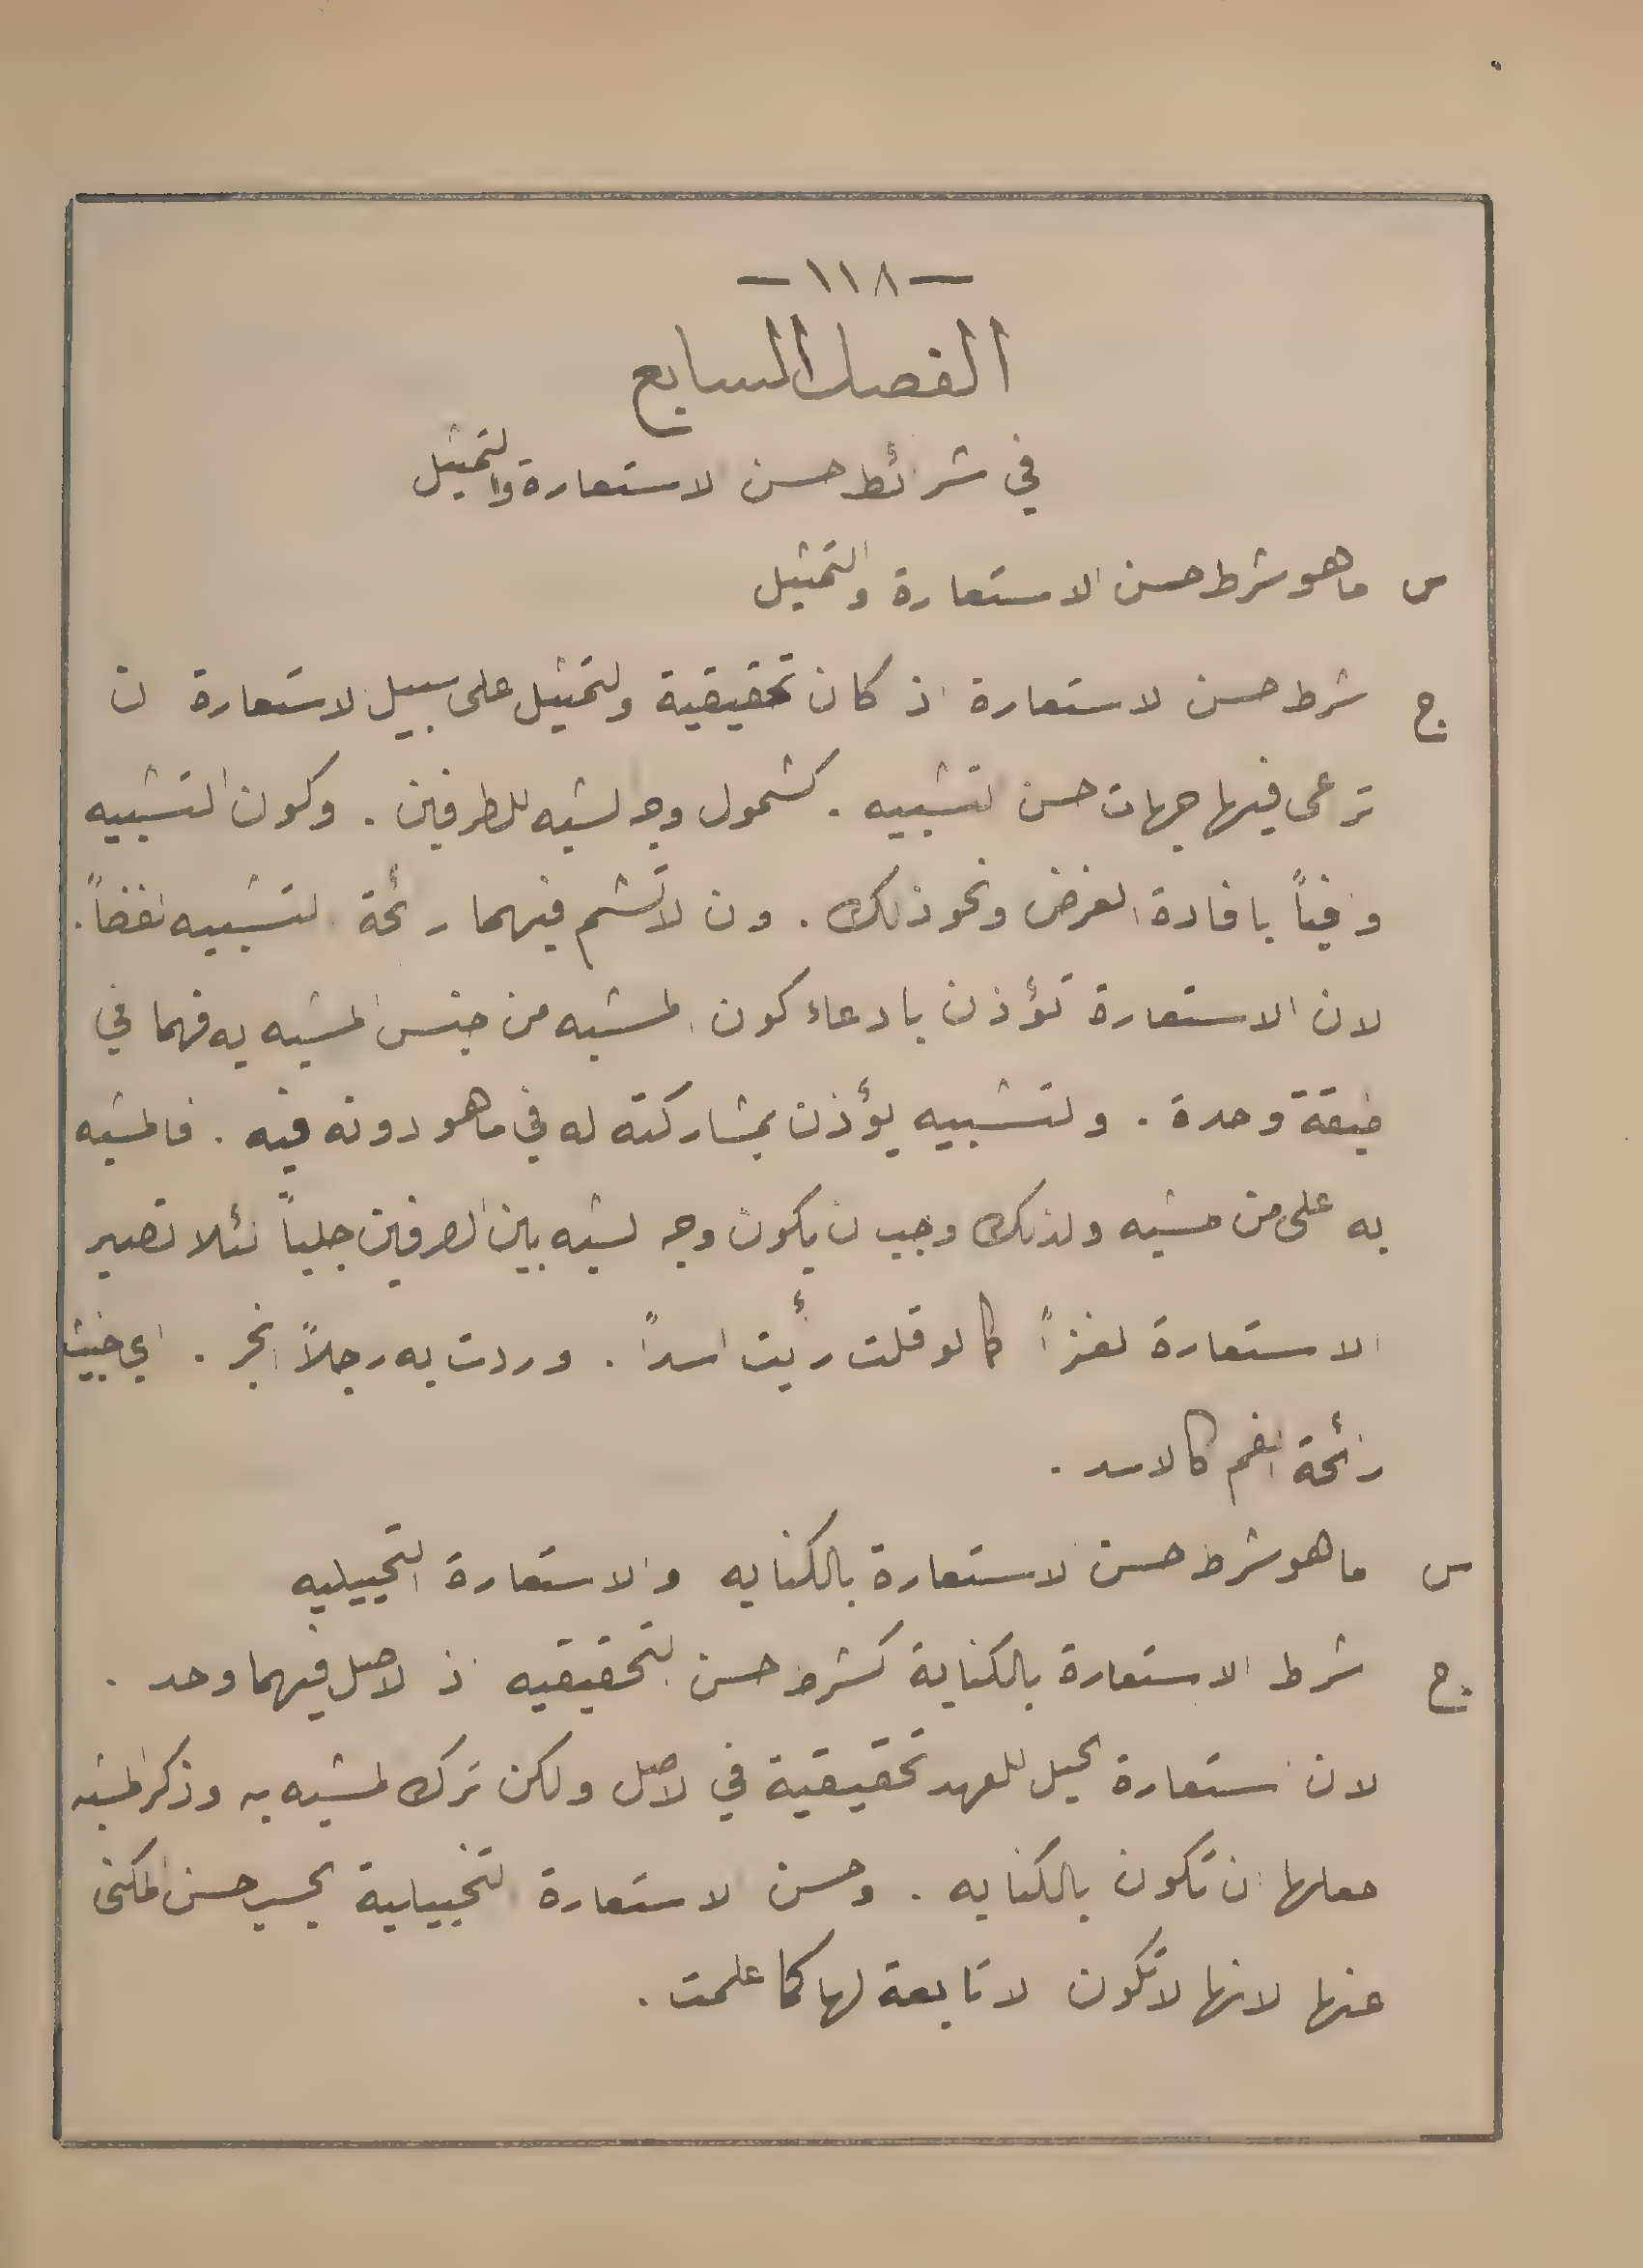 — ١١٨ —
الفصل السابع
في شرائط حسن الاستعارة والتمثيل
س ما هو شرط حسن الاستعارة والتمثيل
ج شرط حسن الاستعارة اذا كان تحقيقية والتمثيل على سبيل الاستعارة ان
تراعى فيها جهات حسن التشبيه . كشمول وجه الشبه للطرفين . وكون التشبيه
وافياً بافادة الغرض ونحو ذلك . وان لا تشم فيهما رائحة التشبيه لفظاً .
لان الاستعارة تؤذن بادعاء كون المشبه من جنس المشبه به فهما في
حقيقة واحدة . والتشبيه يؤذن بمشاركته له في ما هو دونه فيه . فالمشبه
به اعلى من المشبه ولذلك وجب ان يكون وجه الشبه بين الطرفين جلياً لئلا تصير
الاستعارة لغزاً كما لو قلت رأيت اسداً . واردت به رجلاً ابخر . اي خبيث
رائحة الفم كالاسد .
س ما هو شرط حسن الاستعارة بالكنايه والاستعارة التخييليه
ج شرط الاستعارة بالكناية كشرط حسن التحقيقيه اذ الاصل فيهما واحد .
لان استعارة الحبل للعهد تحقيقية في الاصل ولكن ترك المشبه به وذكر المشبه
جعلها ان تكون بالكنايه . وحسن الاستعارة التخييلية بحسب حسن المكنى
عنها لانها لا تكون الا تابعة لها كما علمت .